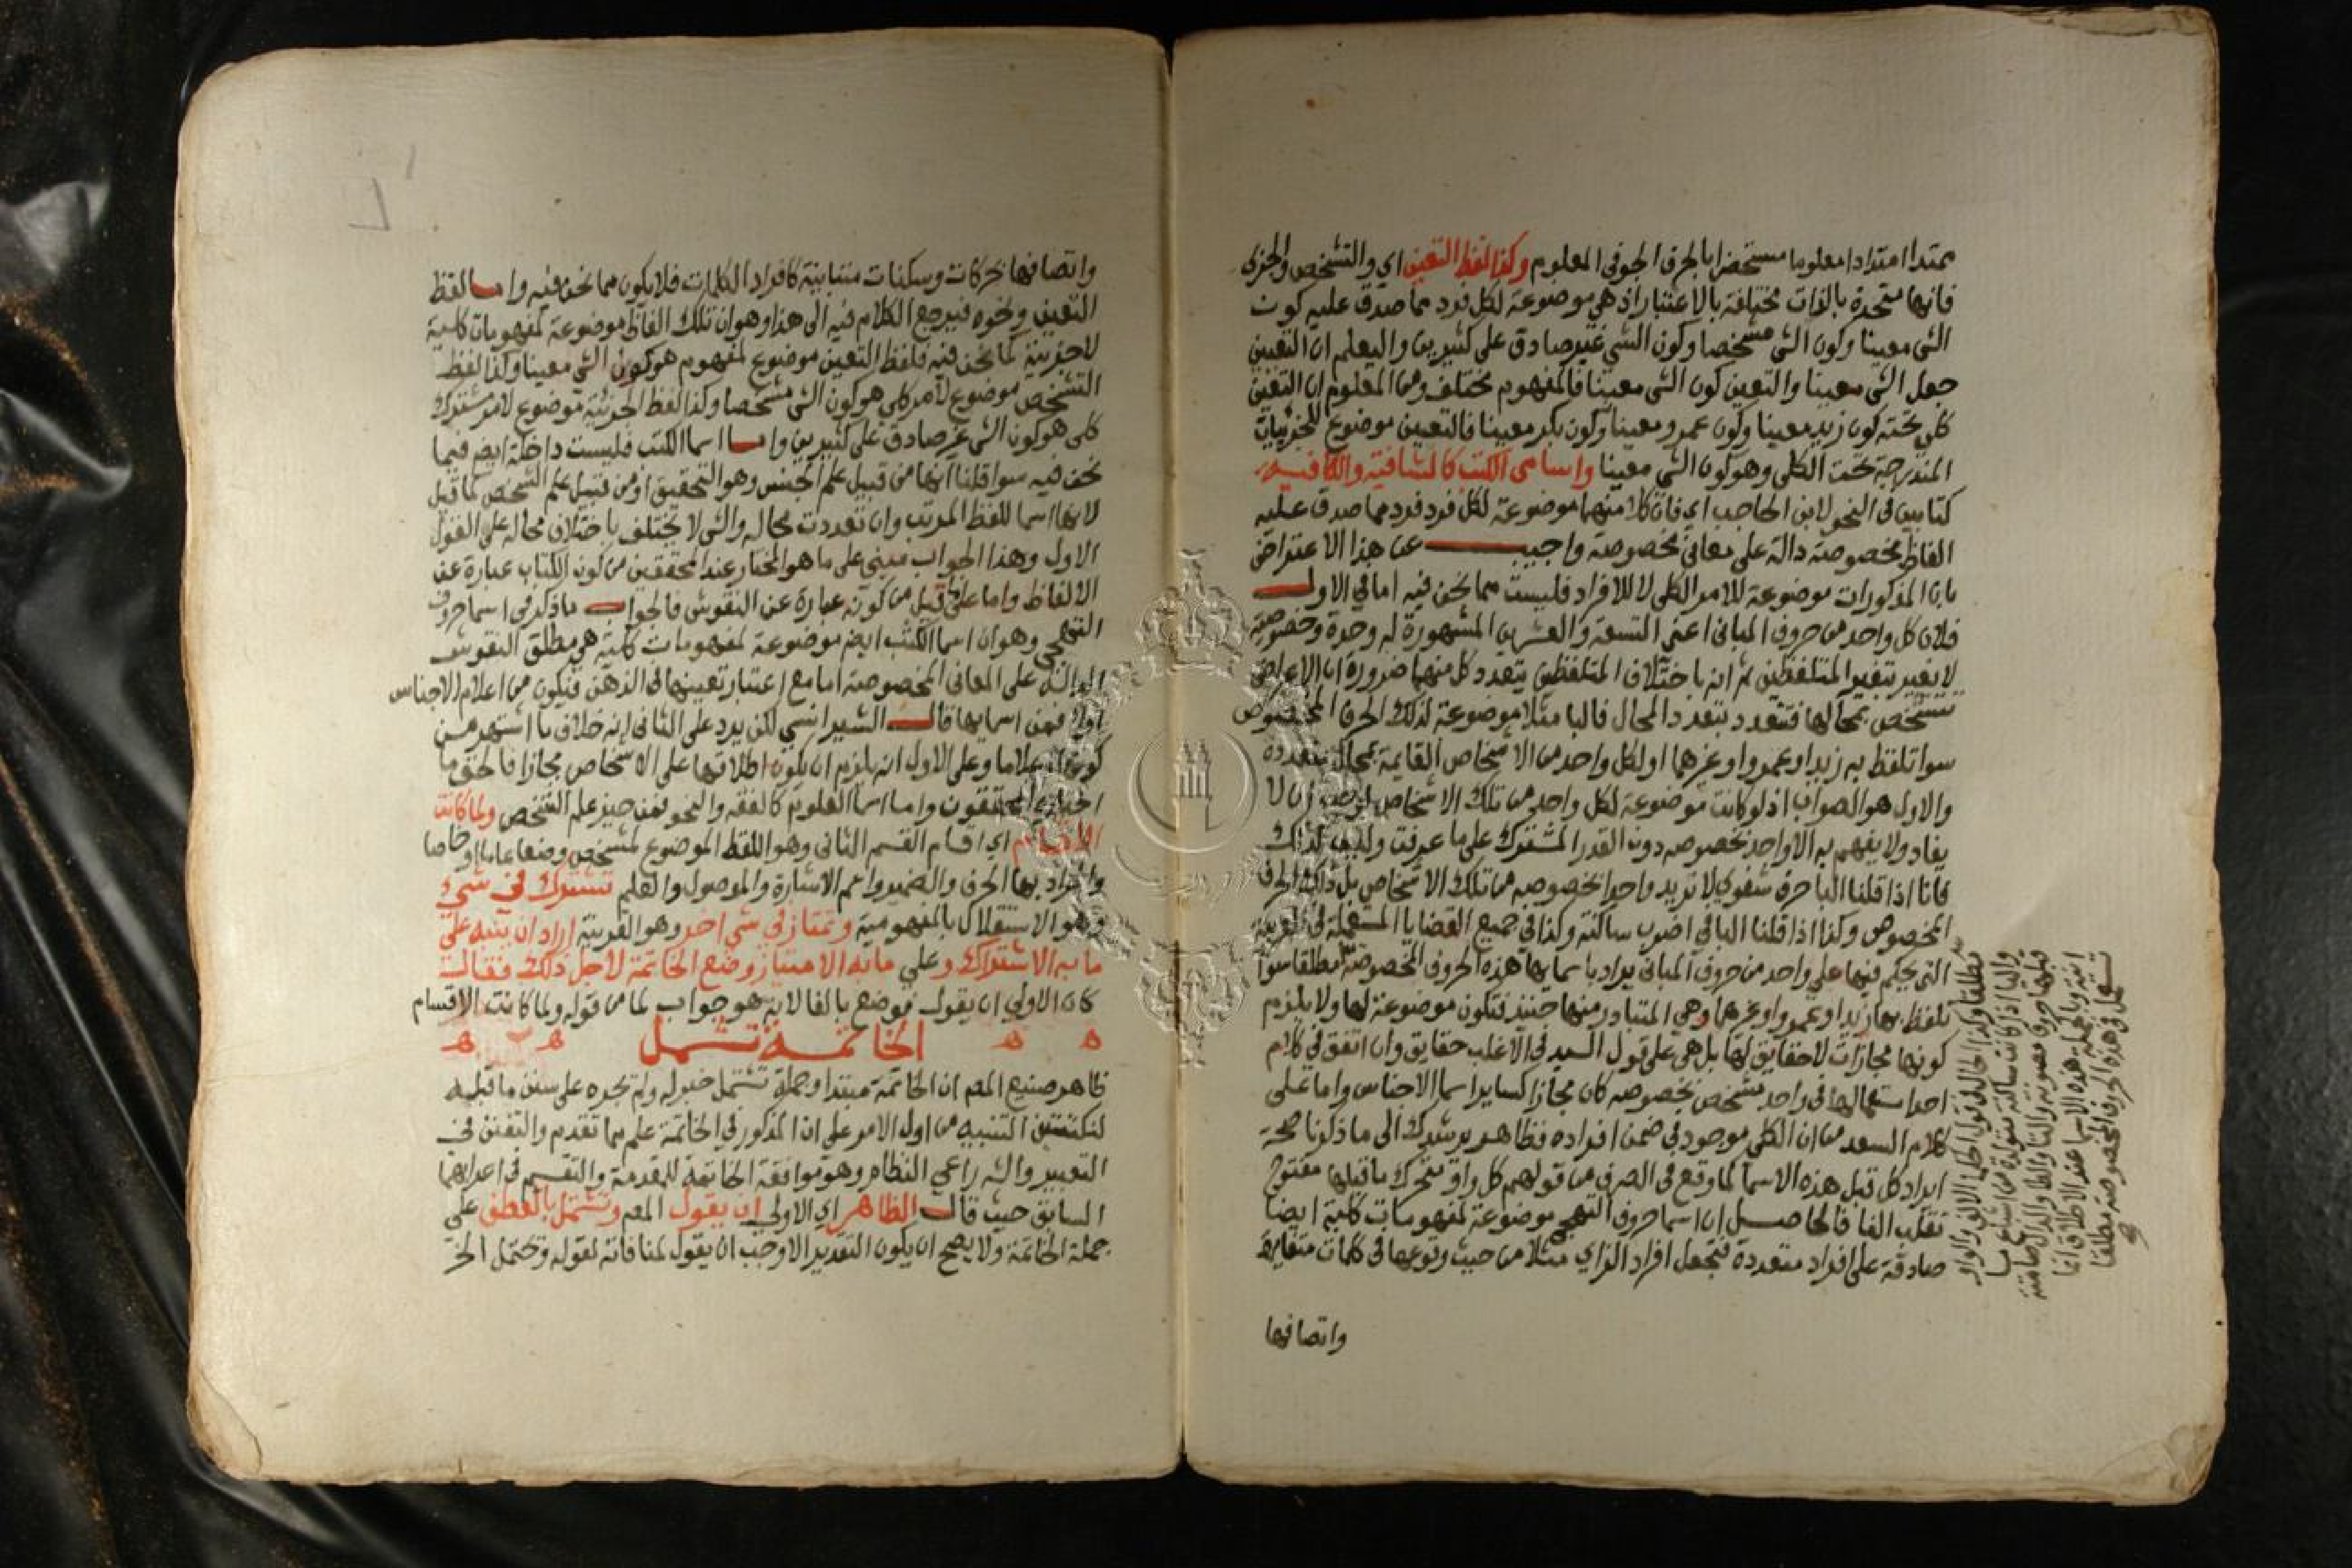 ممتدا امتدادا معلوما مستحضرا بالحرق الجوفي المعلوم وكذا لفظ التعين اي والتشخص والجزي
فانها متحدة بالذات مختلفة بالاعتبار اذ هي موضوعة لكل فرد مما صدق عليه كون
الشي معينا وكون الشي مشخصا وكون الشي غير صادق على كثيرين واليعلم ان التعيين
جعل الشي معينا والتعين كون الشي معينا فالمفهوم مختلف ومن المعلوم ان التعين
كلي تحته كون زيد معينا وكون عمرو معينا وكون بكر معينا فالتعين موضوع للجزئيات
المندرجة تحت الكلي وهو كون الشي معينا واسامى الكتب كالشافية والكافية
كتابين في النحو لابن الحاجب اي فان كلا منهما موضوعة لكل فرد فرد مما صدق عليه
الفاظ مخصوصة دالة على معاني مخصوصة واجيب عن هذا الاعتراض
بان المذكورات موضوعة للامر الكلي لا للافراد فليست مما نحن فيه اما في الاول
فلان كل واحد من حروف المباني اعني التسعة والعشرين المشهورة له وحدة وخصوصية
لا يتغير بتغير المتلفظين ثم انه باختلاف المتلفظين يتعدد كل منهما ضرورة ان الاعراض
تتشخص بمحالها فتتعدد بتعدد المحال فالبا مثلا موضوعة لذلك الحرف المخصوص
سوا تلفظ به زيد او عمرو او غيرهما او لكل واحد من الاشخاص القايمة بمحال متعددة
والاول هو الصواب اذ لو كانت موضوعة لكل واحد من تلك الاشخاص لوجب ان لا
يفاد ولا يفهم به الا واحد بخصوصه دون القدر المشترك على ما عرفت وليس كذلك
فانا اذا قلنا البا حرف شفوي لا نريد واحدا بخصوصه من تلك الاشخاص بل ذلك الحرف
المخصوص وكذا اذا قلنا البا في اضرب ساكنة وكذا في جميع القضايا المستعملة في العربية
التي يحكم فيها على واحد من حروف المباني يراد باسمايها هذه الحروف المخصوصة مطلقا سوا
تلفظ بها زيد او عمرو او غرهما وهي المتبادر منها حينئذ فتكون موضوعة لها ولا يلزم
كونها مجازات لا حقايق لها بل هي على قول السيد في الاغلب حقايق وان اتفق في كلام
احد استعمالها في واحد متشخص بخصوصه كان مجازا كساير اسما الاجناس واما على
كلام السعد من ان الكلي موجود في ضمن افراده فظاهر يرشدك الى ما ذكرنا صحة
ايراد كل قبل هذه الاسما كما وقع في الصرف من قولهم كل واو متحرك ما قبلها مفتوح
تقلب الفا فالحاصل ان اسما حروف التهجي موضوعة لمفهومات كلية ايضا
صادقة على افراد متعددة فتجعل افراد الزاي مثلا من حيث وقوعها في كلمات متغايرة
واتصافها
مطلقا وكذا الحال في قول الحكما الالف والواو
واليا اذا كانت ساكنة متولدة من اشباع ما
قبلها حروف مصوتة والتا والطا والدال صامتة
انية وبالجملة هذه الاسما عند الاطلاق انما
تستعمل في هذه الحروف المخصوصة مطلقا
واتصافها بحركات وسكنات متباينة كافراد الكلمات فلا يكون مما نحن فيه واما لفظ
التعين ونحوه فيرجع الكلام فيه الى هذا وهو ان تلك الفاظ موضوعة لمفهومات كلية
لا جزئية كما نحن فيه فلفظ التعين موضوع لمفهوم هو كون الشي معينا وكذا لفظ
التشخص موضوع لامر كلي هو كون الشي مشخصا وكذا لفظ الجزئية موضوع لامر مشترك
كلى هو كون الشي غير صادق على كثيرين واما اسما الكتب فليست داخلة ايضم فيما
نحن فيه سوا قلنا انها من قبيل علم الجنس وهو التحقيق او من قبيل علم الشخص كما قيل
لانها اسما للفظ المرتب وان تعددت محاله والشي لا يختلف باختلاف محاله على القول
الاول وهذا الجواب مبني على ما هو المختار عند المحققين من كون الكتاب عبارة عن
الالفاظ واما على قيل من كونه عبارة عن النقوش فالجواب ما ذكر في اسما حروف
التهجي وهو ان اسما الكتب ايضم موضوعة لمفهومات كلية هي مطلق النقوش
الدالة على المعاني المخصوصة اما مع اعتبار تعيينها في الذهن فيكون من اعلام الاجناس
او لا فمن اسمايها قال الشيرانسي لكن يرد على الثاني انه خلاف ما اشتهر من
كونها اعلاما وعلى الاول انه يلزم ان يكون اطلاقها على الاشخاص مجازا فالحق ما
اختاره المحققون واما اسما العلوم كالفقه والنحو فمن حيز علم الشخص ولما كانت
الاقسام اي اقسام القسم الثاني وهو اللفظ الموضوع لمشخص وضعا عاما او خاصا
والمراد بها الحرف والضمير واسم الاشارة والموصول والعلم تشترك في شي
وهو الاستقلاك بالمفهومية وتمتاز في شي اخر وهو القرينة اراد ان ينبه على
ما به الاشتراك وعلي ما به الامتياز وضع الخاتمة لاجل ذلك فقال
كان الاولي ان يقول فوضع بالفا لانه هو جواب لما من قوله ولما كانت الاقسام
الخاتمة تشتمل
ظاهر صنيع المم ان الخاتمة مبتدا وجملة تشتمل خبر له ولم يجره على سنن ما قبله
لنكتتين التنبيه من اول الامر على ان المذكور في الخاتمة علم مما تقدم والتفنن في
التعبير والشر راعي النظام وهو موافقة الخاتمة للمقدمة والتقسيم في اعرابهما
السابق حيث قال الظاهر اي الاولي ان يقول المم وتشتمل بالعطف على
جملة الخاتمة ولا يصح ان يكون التقدير الاوجب ان يقول لمنافاته لقوله وتحتمل الخ